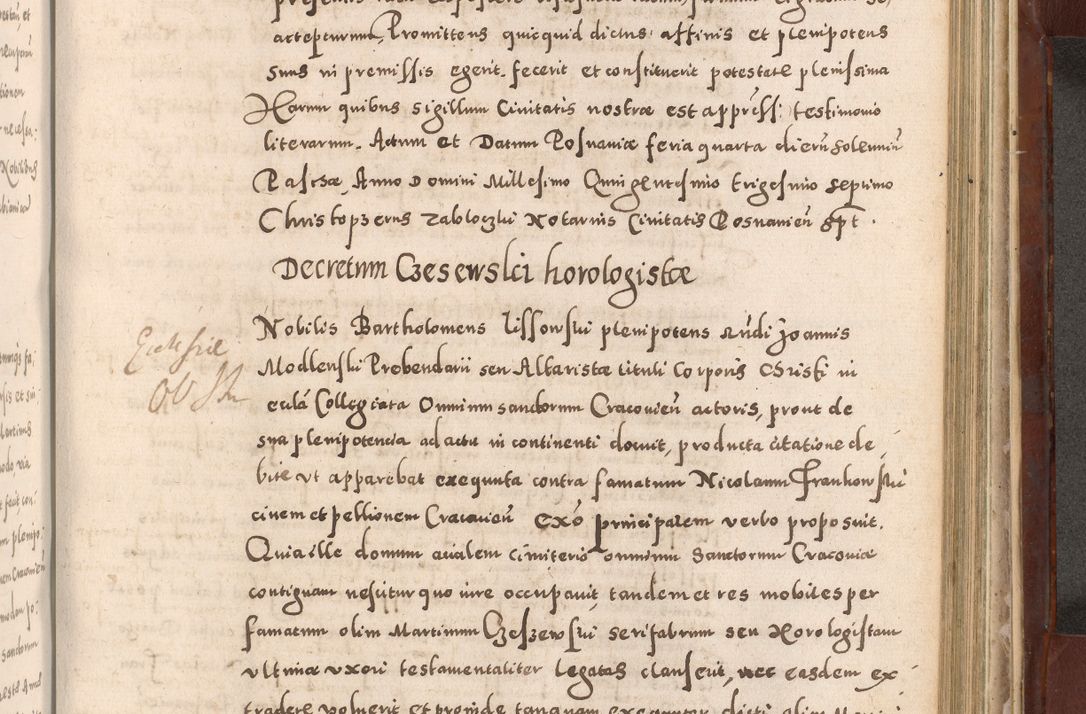 accepturum, Promittens quicquid dictus affinis et plenipotens
suus in premissis egerit, fecerit et constituerit potestate plenissima
Harum quibus sigillum Civitatis nostræ est appress: testimonio
literarum. Actum et Datum Posnaniæ feria quarta dierū solemniū
Paschæ, Anno Domini Millesimo Quingentesimo trigesimo septimo
Christopherus Zabloczki Notarius Civitatis Posnanieñ spt.
Decretum Czesewski horologistæ
Nobilis Bartholomeus Lissowski plenipotens Rūdi Joannis
Modlenski Prebendarii seu Altaristæ tituli Corporis Christi in
Ecclesiae
ecclā Collegiata Omnium sanctorum Cracovieñ actoris, prout de
sua plenipotencia ad actu in continenti docuit, producta citatione de
bite ut apparebat exequuta contra famatum Nicolaum Frankowski
civem et pellionem Cracovieñ exō principalem verbo proposuit.
Quia ille domum avialem cimiterio omnium Sanctorum Cracoviæ
contiguam nescitur quo iure occupavit, tandem et res mobiles per
famatum olim Martinum Czeszewski serifabrum seu Horologistam
ultimæ uxori testamentaliter legatas clauserit, nec easdem ex
tradere voluerit et proinde tanquam exequutor dicti olim